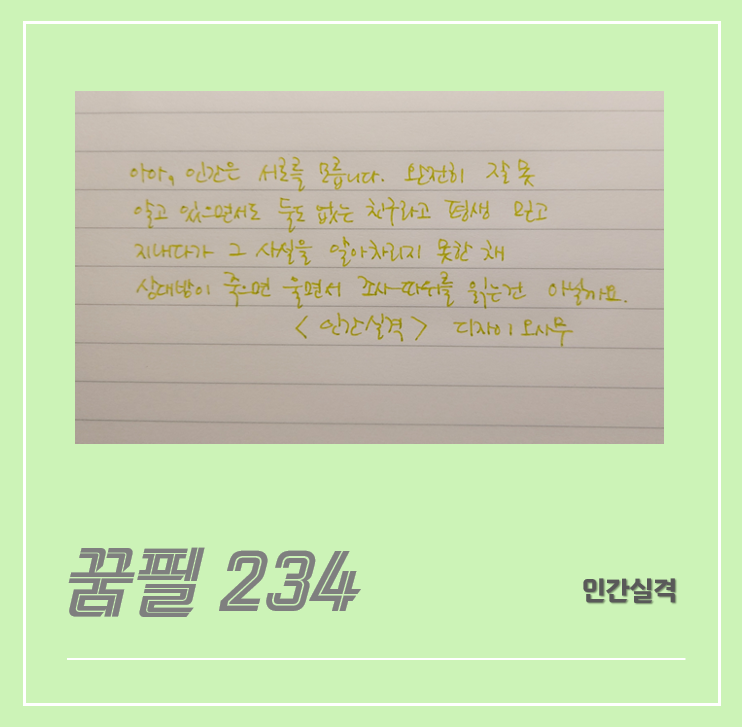 아아, 인간은 서로를 모릅니다. 완전히 잘못
알고 있으면서도 둘도 없는 친구라고 평생 믿고
지내다가 그 사실을 알아차리지 못한 채
상대방이 죽으면 울면서 조사 따위를 읽는건 아닐까요.
<인간실격> 디자이 오사무
꿈필 234
인간실격